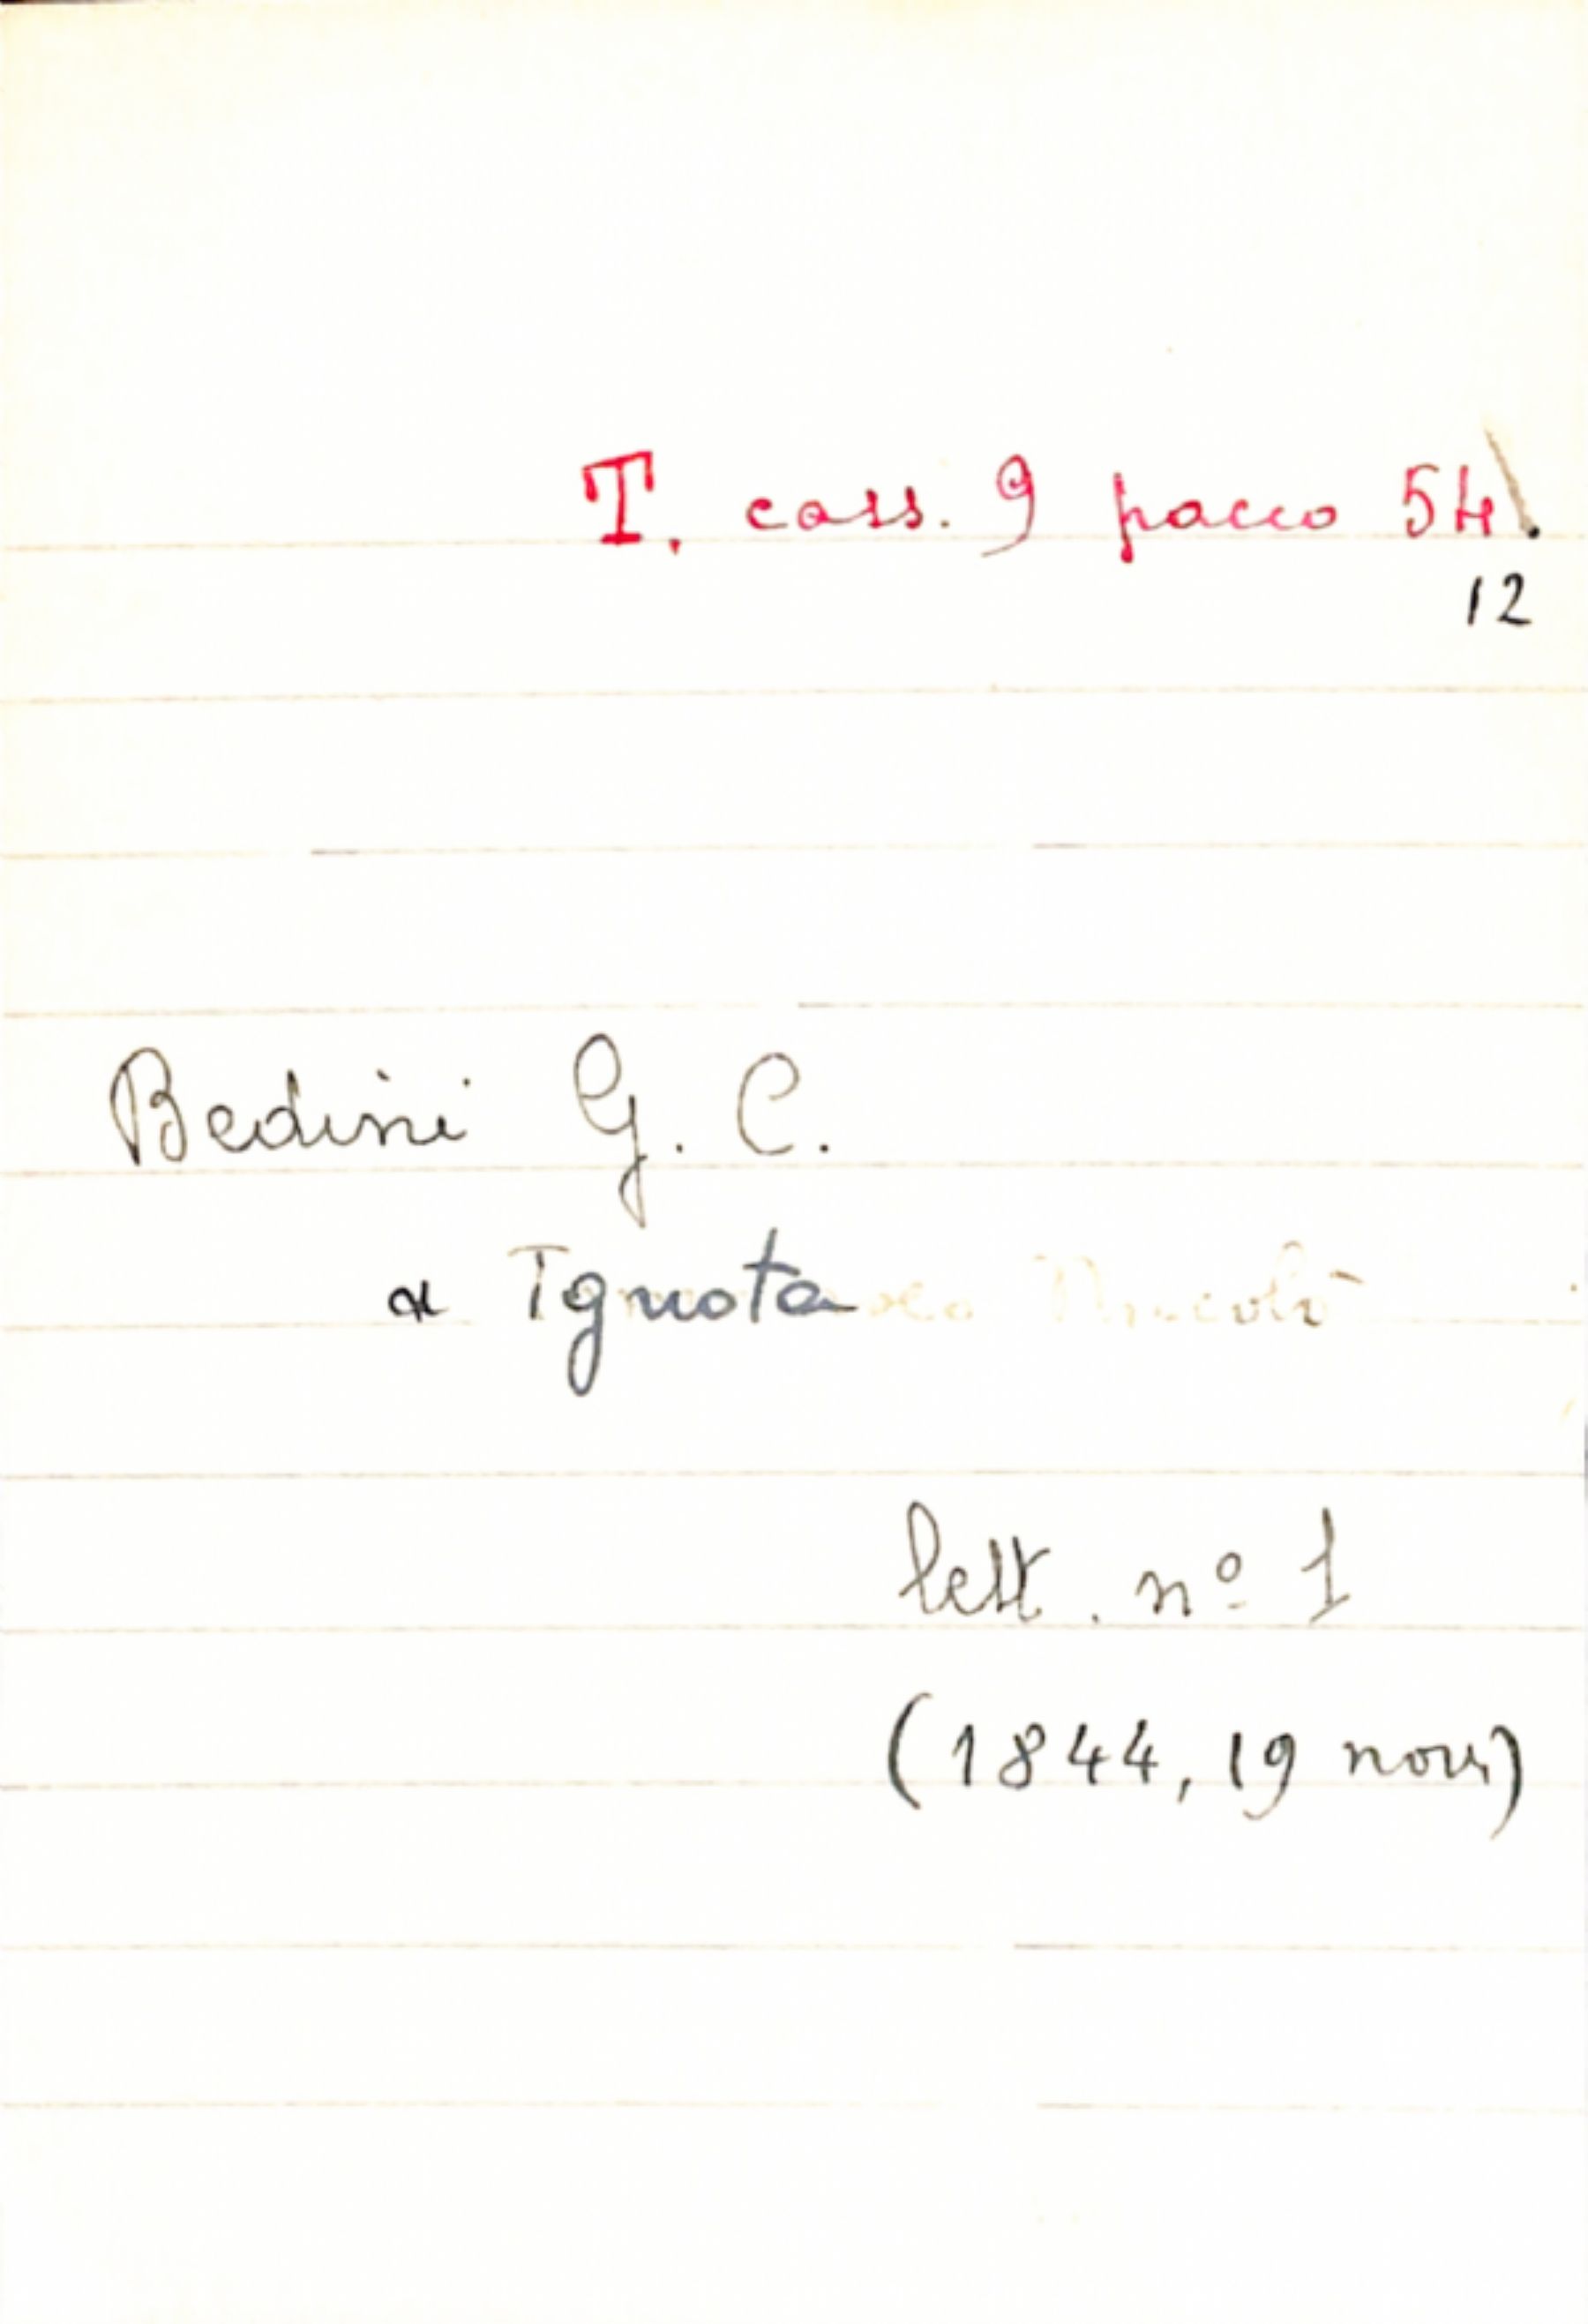 T. cass. 9 pacco 54.
12
Bedini G. C.
a Ignota
lett. nº 1
(1844, 19 nov.)